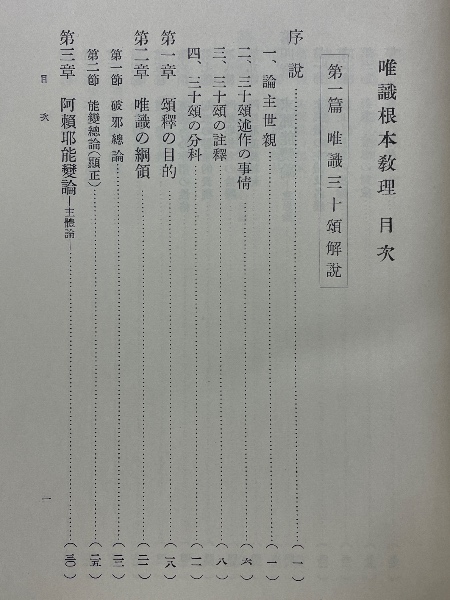 唯識根本教理 目次
第一篇 唯識三十頌解說
序說……………………(一)
一、論主世親……………………(一)
二、三十頌述作の事情……………………(六)
三、三十頌の註釋……………………(八)
四、三十頌の分科……………………(一一)
第一章 頌釋の目的……………………(一八)
第二章 唯識の綱領……………………(二一)
第一節 破邪總論……………………(二三)
第二節 能變總論(顯正)……………………(二五)
第三章 阿賴耶能變論—主體論……………………(三〇)
目次
一